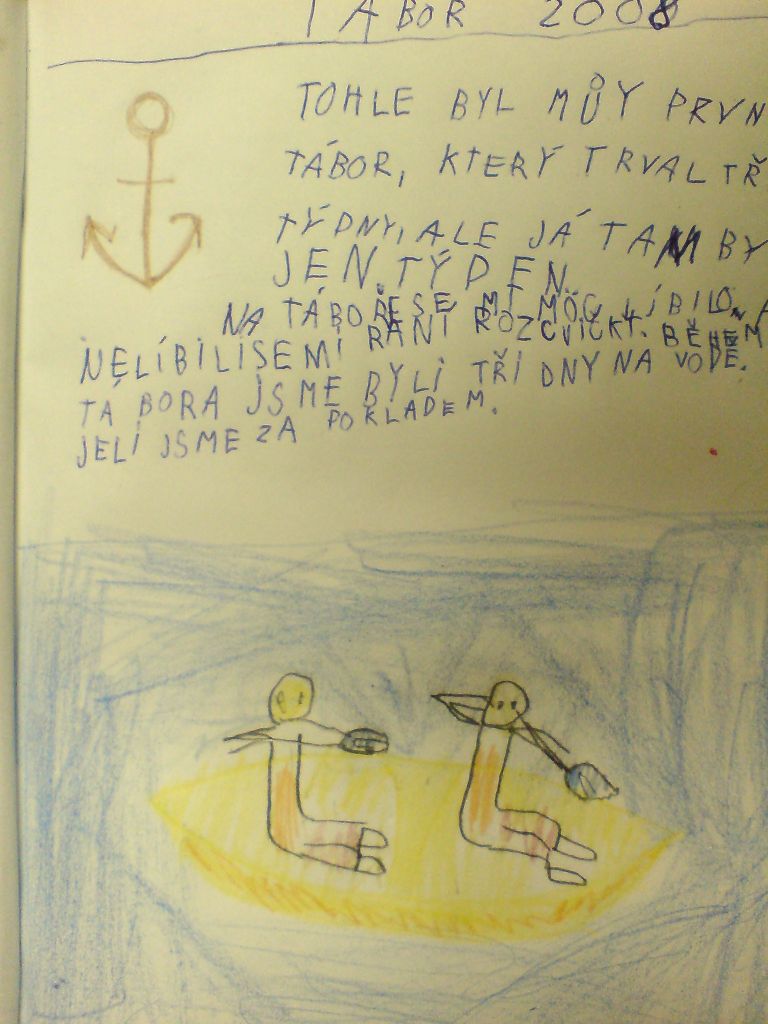 TÁBOR 2008
TOHLE BYL MŮY PRVN
TÁBOR, KTERÝ TRVAL TŘ
TÝDNY, ALE JÁ TAM BY
JEN TÝDEN.
NA TÁBOŘE SE MI MOC LÍBILO,
NELÍBILI SE MI RANÍ ROZCVIČKY. BĚHEM
TÁBORA JSME BYLI TŘI DNY NA VODĚ.
JELI JSME ZA POKLADEM.